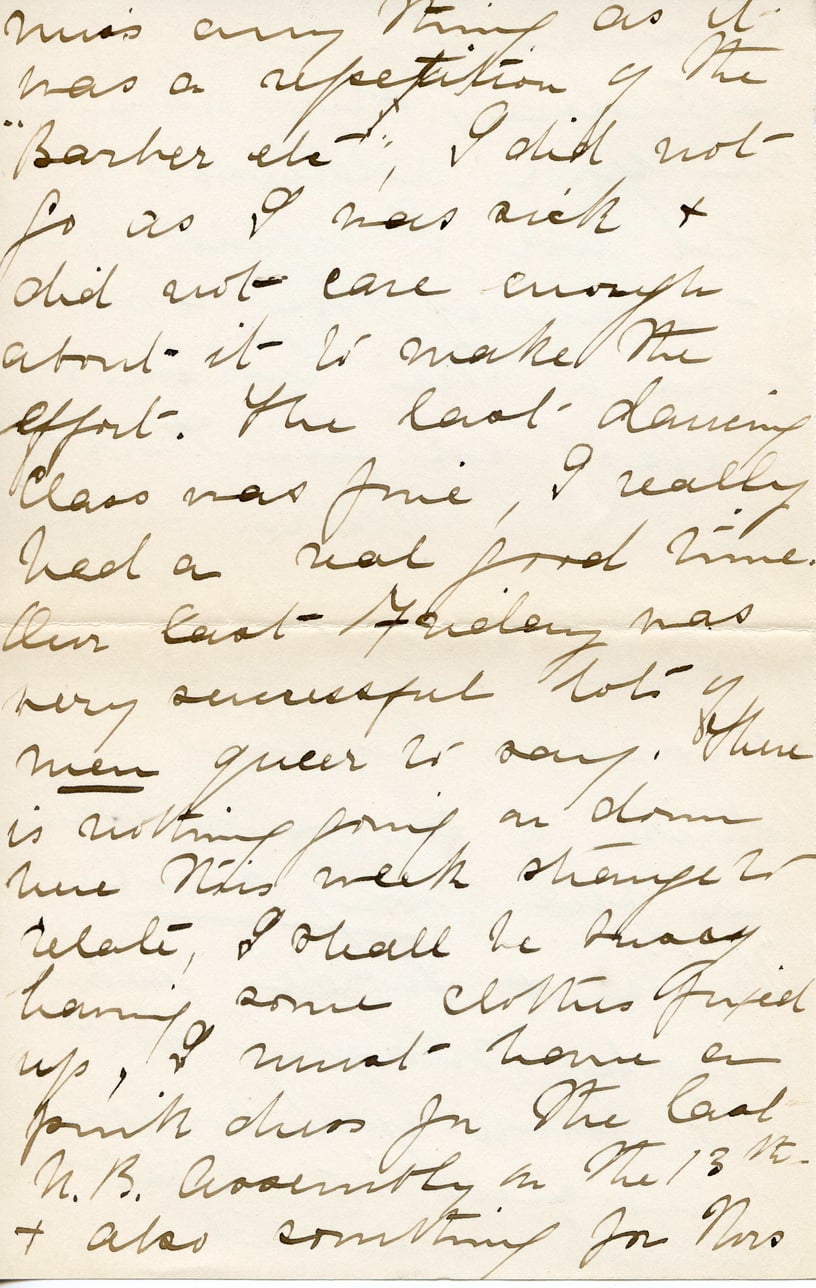 miss any thing as it
was a repetition of the
"Barber etc", I did not
go as I was sick +
did not care enough
about it to make the
effort. The last dancing
class was fine, I really
had a real good time.
Our last Friday was
very successful lots of
men queer to say. There
is nothing going on down
here this week strange to
relate, I shall be busy
having some clothes fixed
up, I must have a
pink dress for the last
N.B. Assembly on the 13th
+ also something for